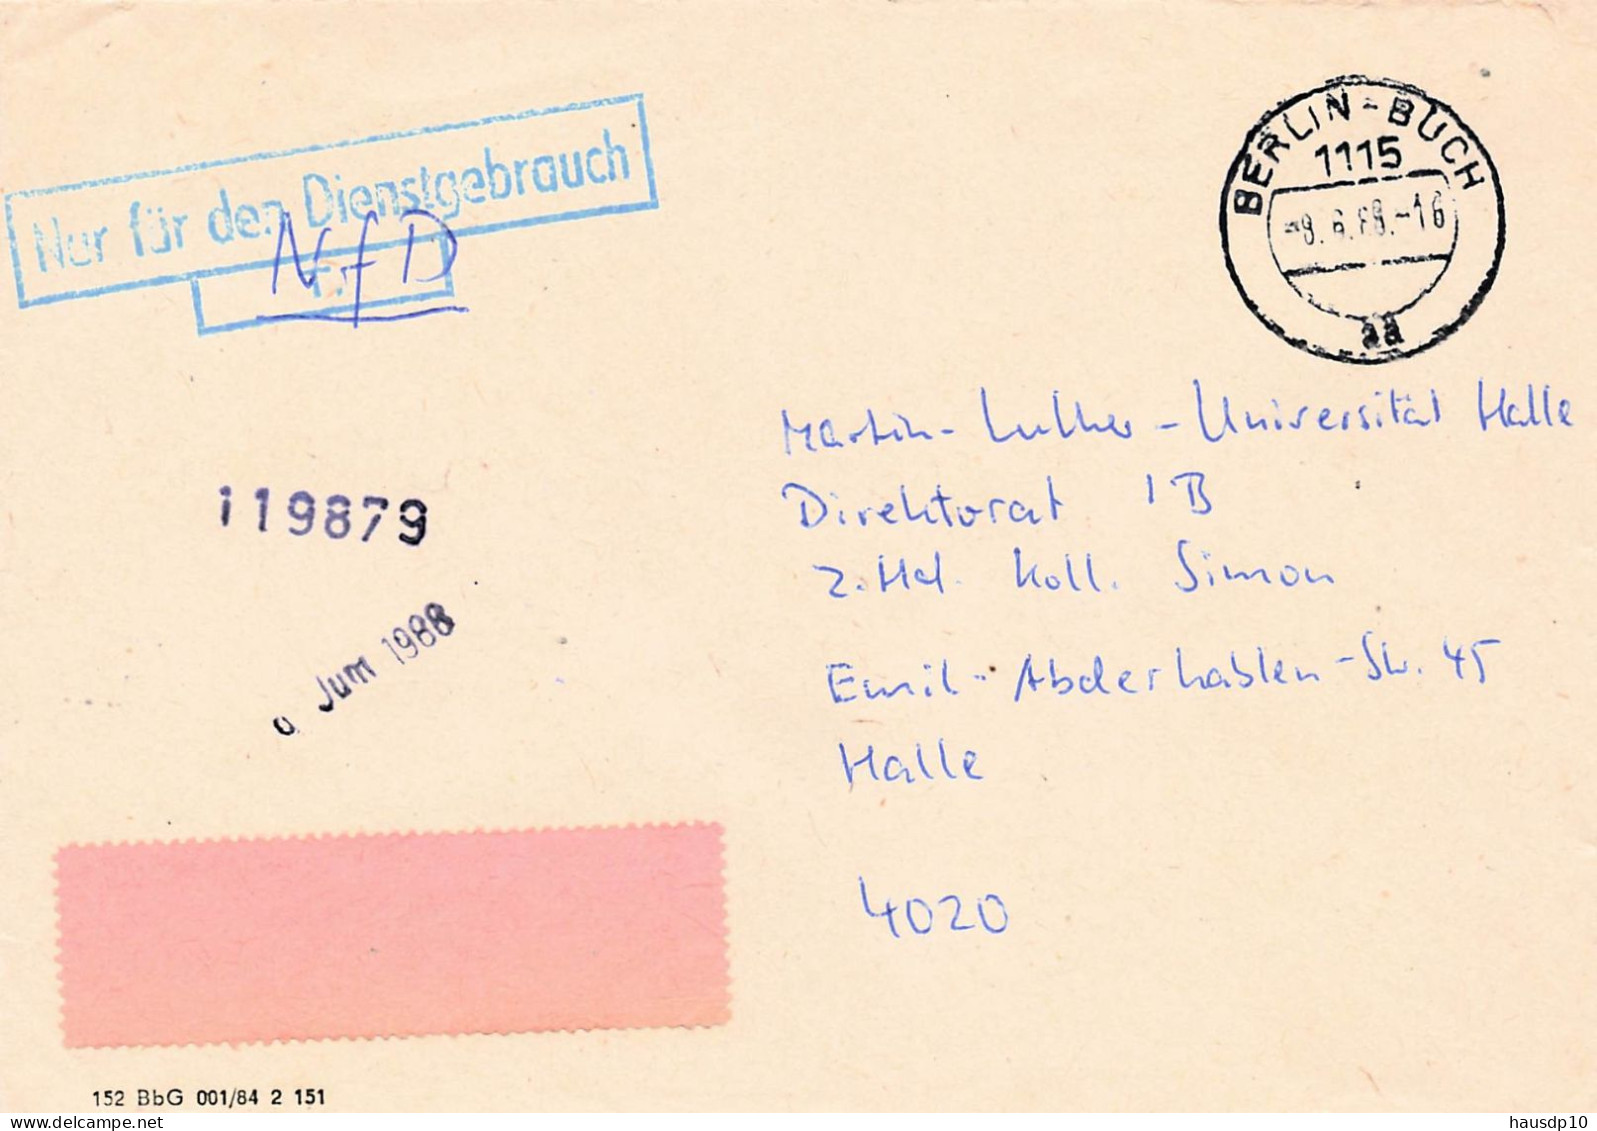 Nur für den Dienstgebrauch
NfD
BERLIN-BUCH
1115
-9.6.88.-16
aa
Martin-Luther-Universität Halle
Direktorat 1B
z. Hd. Koll. Simon
119879
Juni 1988
Emil-Abderhalden-Str. 45
Halle
4020
152 BbG 001/84 2 151
hausdp10